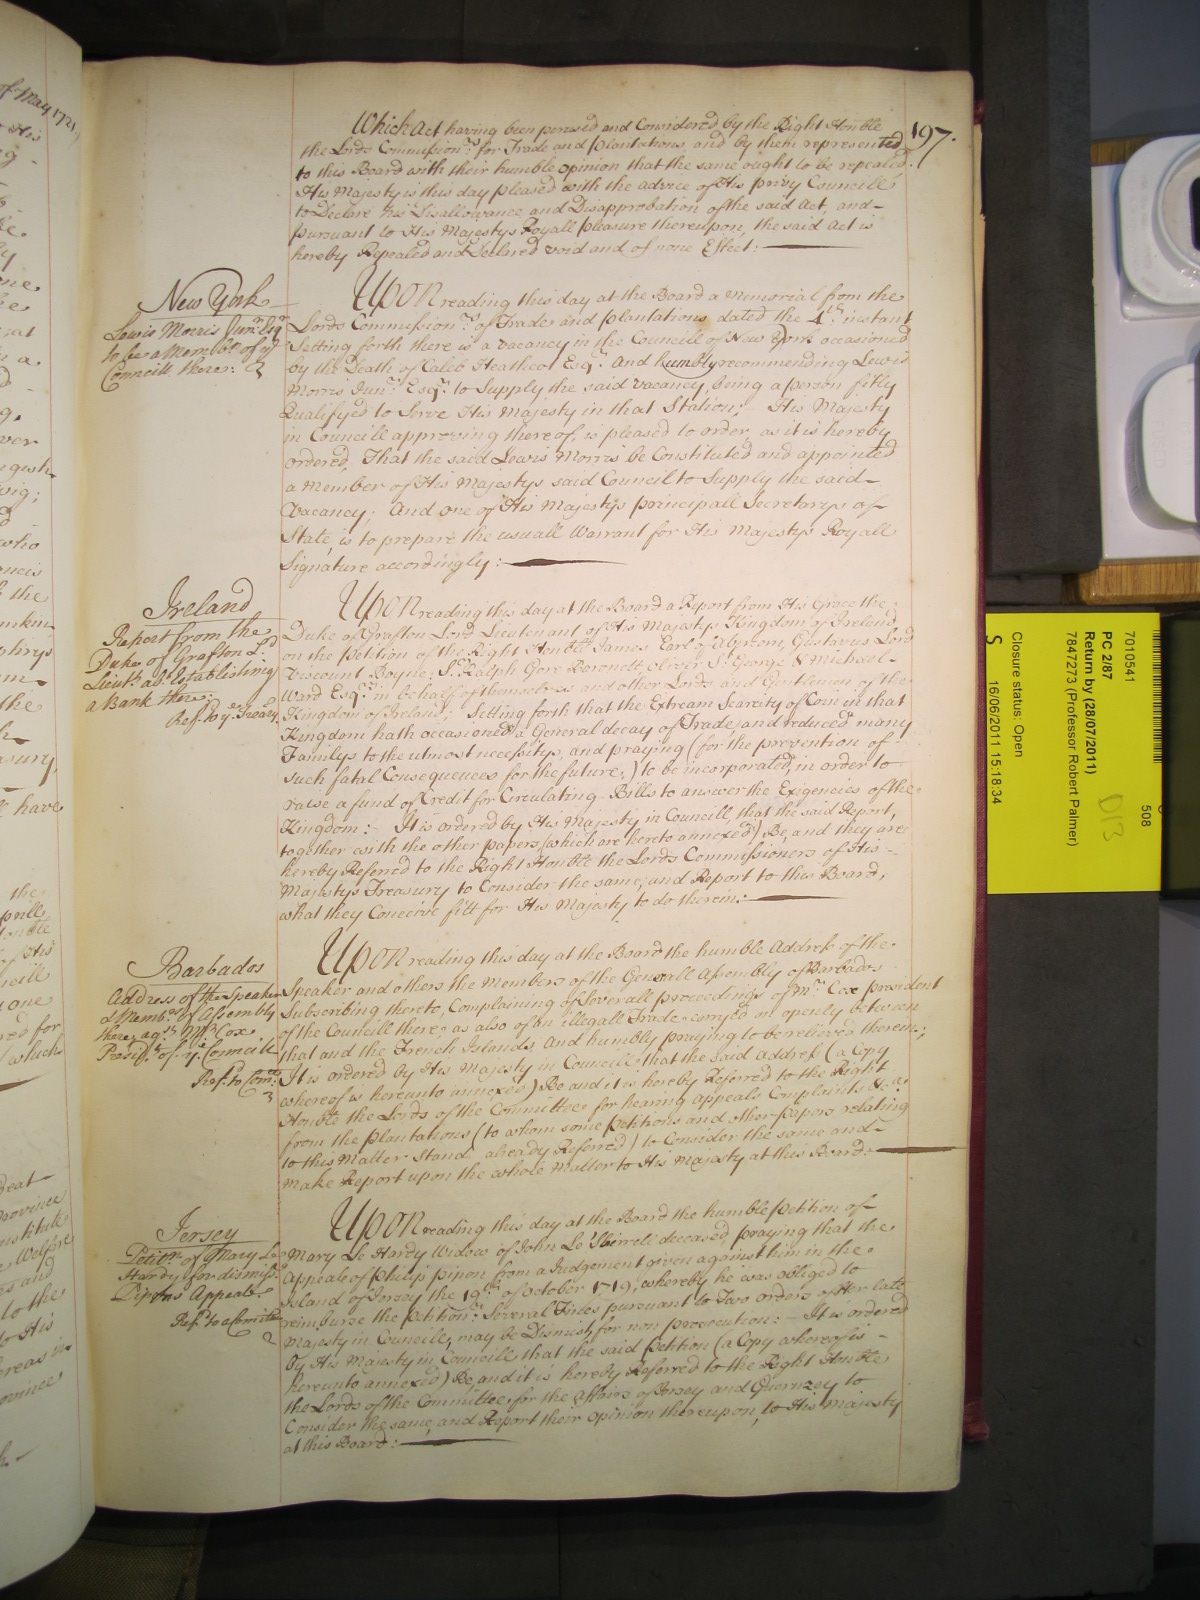 197.
Which Act having been perused and Considered by the Right Honble
the Lords Commission.rs for Trade and Plantations, and by them represented
to this Board with their humble Opinion that the same ought to be repealed.
His Majesty is this day pleased with the advice of His Privy Councill
to Declare his Disallowance and Disapprobation of the said Act, and
pursuant to His Majestys Royall pleasure thereupon, the said Act is
hereby Repealed and Declared void and of none Effect:
New York
Lewis Morris Jun.r Esq.r
to be a Memb.r of y.e
Councill there:
Upon reading this day at the Board a Memorial from the
Lords Commission.rs of Trade and Plantations dated the 4.th instant
Setting forth there is a vacancy in the Councill of New York occasioned
by the Death of Caleb Heathcot Esq.r And humbly recommending Lewis
Morris Jun.r Esq.r to Supply the said vacancy, being a person fitly
Qualifyed to Serve His Majesty in that Station; His Majesty
in Councill approving thereof, is pleased to order, as it is hereby
ordered, That the said Lewis Morris be Constituted and appointed
a Member of His Majestys said Council to Supply the said
Vacancy; And one of His Majestys principall Secretarys of
State, is to prepare the usuall Warrant for His Majestys Royall
Signature accordingly:
Ireland
Report from the
Duke of Grafton L.d
Lieut.t ab.t Establishing
a Bank there:
Ref.d to y.e Treãry
Upon reading this day at the Board a Report from His Grace the
Duke of Grafton Lord Lieutenant of His Majestys Kingdom of Ireland
on the Petition of the Right Honble James Earl of Abercorn, Gustavus Lord
Viscount Boyne, S.r Ralph Gore Baronett Oliver S.t George & Michael
Ward Esq.rs in behalf of themselves and other Lords and Gentlemen of the
Kingdom of Ireland; Setting forth that the Extream Scarcity of Coin in that
Kingdom hath occasioned a General decay of Trade, and reduced many
Familys to the utmost necessitys, and praying (for the prevention of
such fatal Consequences for the future,) to be incorporated, in order to
raise a fund of Credit for Circulating Bills to answer the Exigencies of the
Kingdom: It is ordered by His Majesty in Councill, that the said Report,
together with the other papers (which are hereto annexed) Be, and they are
hereby Referred to the Right Honble the Lords Commissioners of His
Majestys Treasury to Consider the same, and Report to this Board,
what they Conceive fitt for His Majesty to do therein:
Barbados
Address of the Speaker
& Memb.rs of Assembly
there, ag.st M.r Cox
Presid.t of y.e Councill
Ref.d to Com.ee
Upon reading this day at the Board the humble Address of the
Speaker and others the Members of the Generall Assembly of Barbados
Subscribing thereto, Complaining of Severall proceedings of M.r Cox president
of the Councill there, as also of an illegall Trade carryed on openly between
that and the French Islands, And humbly praying to be relieved therein;
It is ordered by His Majesty in Councill that the said Address (a Copy
whereof is hereunto annexed) Be and it is hereby Referred to the Right
Honble the Lords of the Committee for hearing Appeals Complaints &c.a
from the Plantations (to whom some Petitions and other papers relating
to this Matter Stand already Referred) to Consider the same and
make Report upon the whole Matter to His Majesty at this Board:
Jersey
Petit.n of Mary Le
Hardy for dismiss.g
Pipons Appeale
Ref.d to a Comittee
Upon reading this day at the Board the humble Petition of
Mary Le Hardy Widow of John Le deceased praying that the
Appeale of Philip Pipon from a Judgement given against him in the
Island of Jersey the 19.th of October 1719, whereby he was obliged to
reimburse the Petition.r Several Fines pursuant to Two orders of Her late
Majesty in Councill, may be Dismist, for non prosecution: It is ordered
by His Majesty in Councill that the said Petition (a Copy whereof is
hereunto annexed) Be, and it is hereby Referred to the Right Honble
the Lords of the Committee for the Affairs of Jersey and Guernzey to
Consider the same, and Report their Opinion thereupon, to His Majesty
at this Board:
7010541
508
PC 2/87
Return by (28/07/2011)
7847273 (Professor Robert Palmer)
D13
Closure status: Open
S
16/06/2011 15:18:34